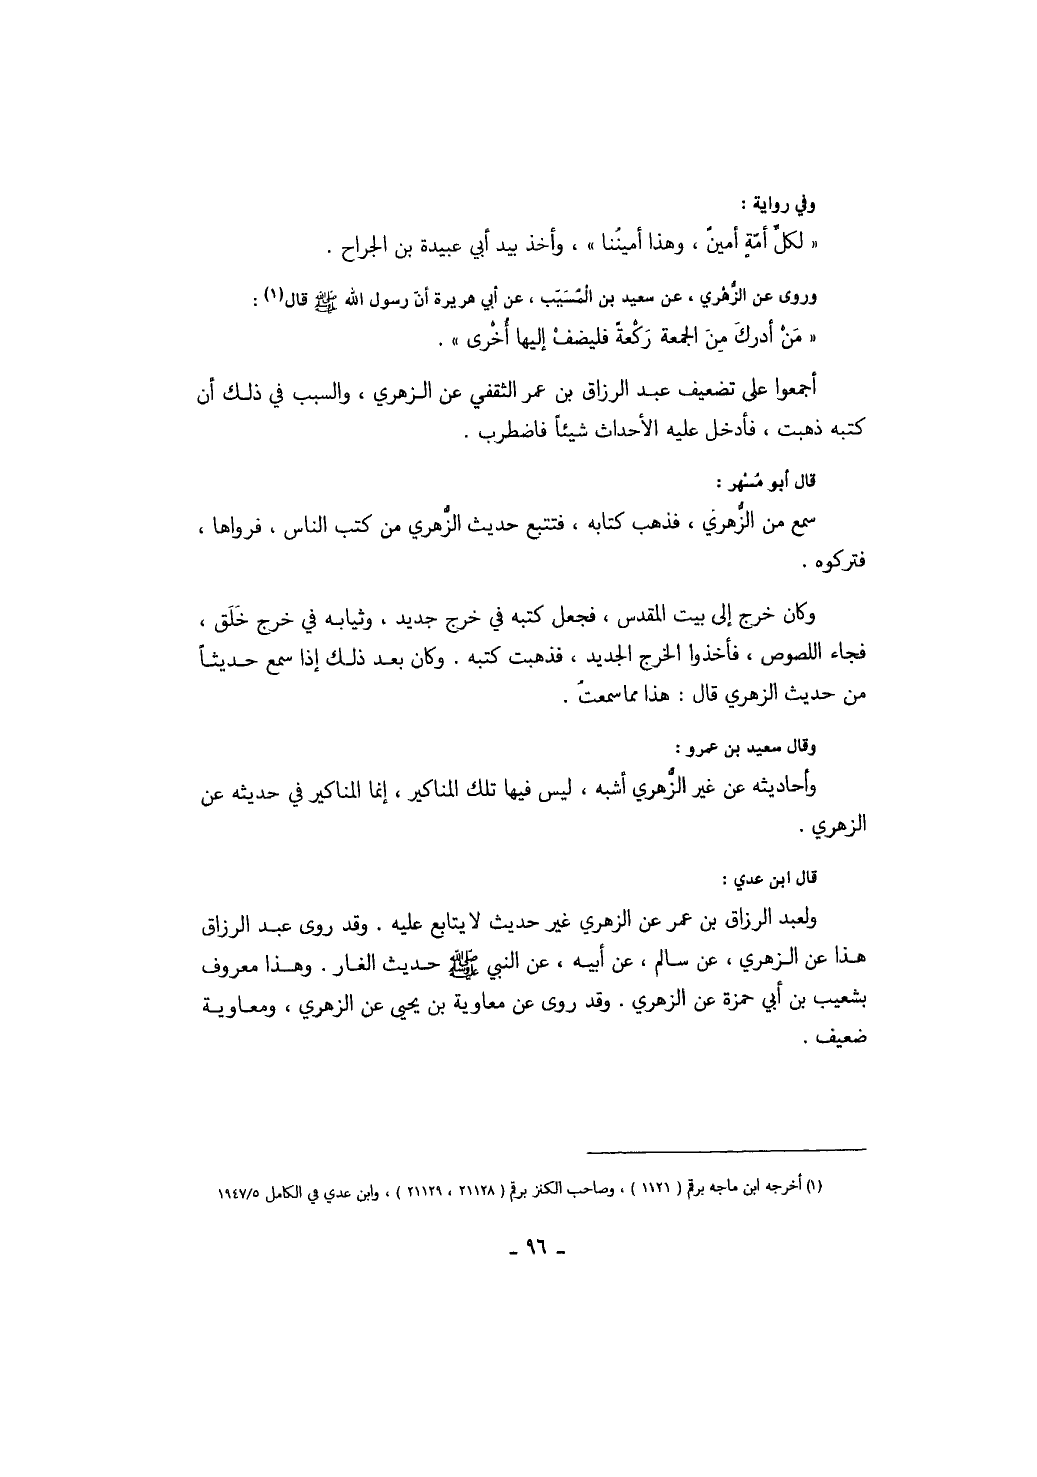 وفي رواية :
« لكلِّ أمّةٍ أمينٌ ، وهذا أمينُنا » ، وأخذ بيد أبي عبيدة بن الجراح .
وروى عن الزُّهْري ، عن سعيد بن الْمُسَيّب ، عن أبي هريرة أنّ رسول الله ﷺ قال(١) :
« مَنْ أدركَ مِنَ الجمعة رَكْعةً فليضفْ إليها أُخْرى » .
أجمعوا على تضعيف عبد الرزاق بن عمر الثقفي عن الزهري ، والسبب في ذلك أن
كتبه ذهبت ، فأدخل عليه الأحداث شيئاً فاضطرب .
قال أبو مُسْهر :
سمع من الزُّهري ، فذهب كتابه ، فتتبع حديث الزُّهري من كتب الناس ، فرواها ،
فتركوه .
وكان خرج إلى بيت المقدس ، فجعل كتبه في خرج جديد ، وثيابه في خرج خَلَق ،
فجاء اللصوص ، فأخذوا الخرج الجديد ، فذهبت كتبه . وكان بعد ذلك إذا سمع حديثاً
من حديث الزهري قال : هذا مما سمعتُ .
وقال سعيد بن عمرو :
وأحاديثه عن غير الزُّهري أشبه ، ليس فيها تلك المناكير ، إنما المناكير في حديثه عن
الزهري .
قال ابن عدي :
ولعبد الرزاق بن عمر عن الزهري غير حديث لا يتابع عليه . وقد روى عبد الرزاق
هذا عن الزهري ، عن سالم ، عن أبيه ، عن النبي ﷺ حديث الغار . وهذا معروف
بشعيب بن أبي حمزة عن الزهري . وقد روى عن معاوية بن يحيى عن الزهري ، ومعاوية
ضعيف .
(١) أخرجه ابن ماجه برقم ( ١١٢١ ) ، وصاحب الكنز برقم ( ٢١١٢٨ ، ٢١١٢٩ ) ، وابن عدي في الكامل ١٩٤٧/٥
ـ ٩٦ ـ